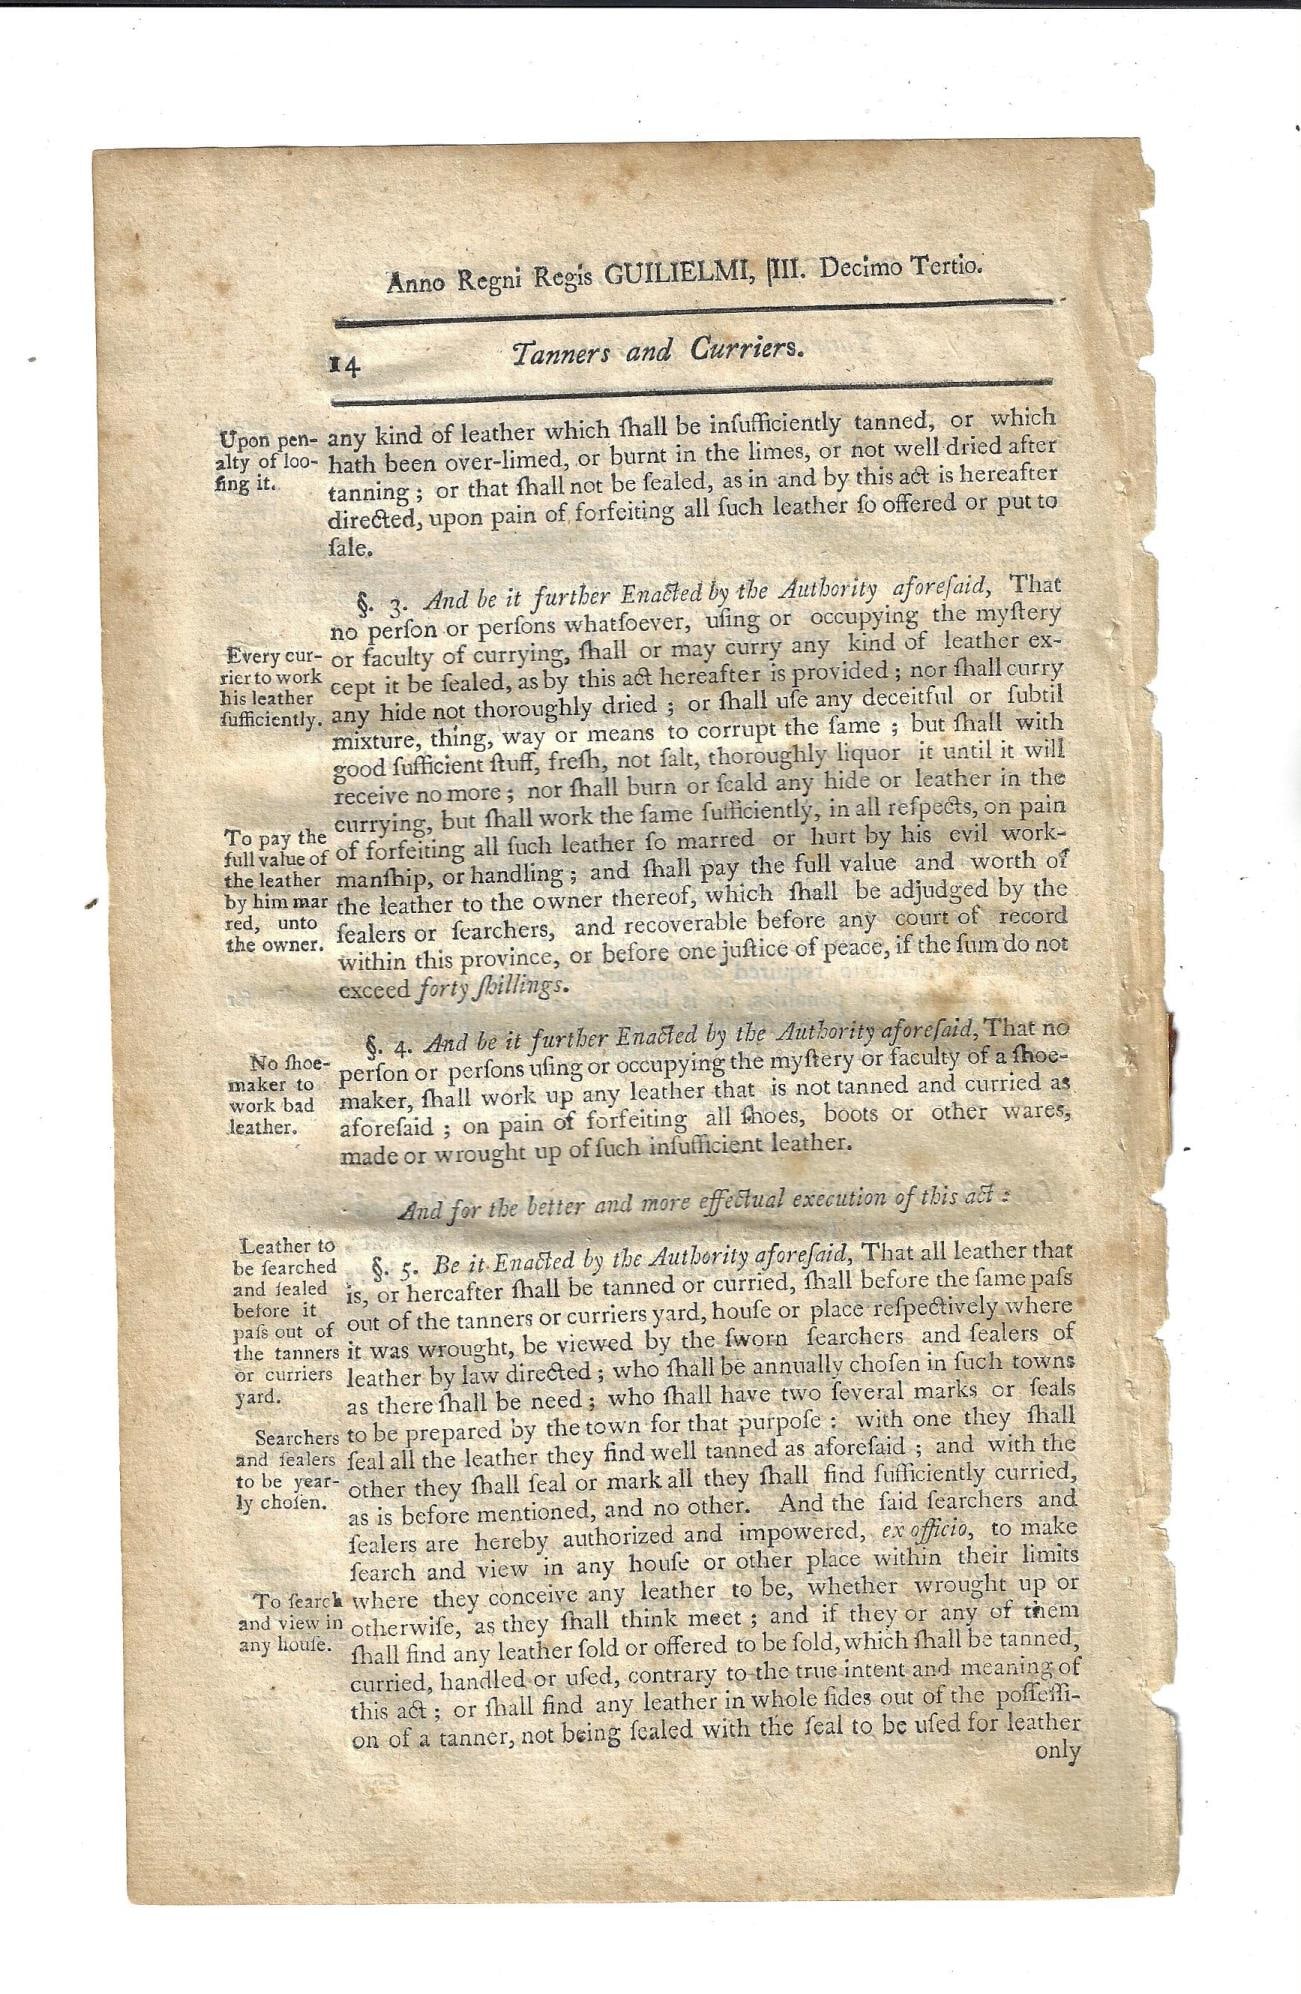 Anno Regni Regis GUILIELMI, III. Decimo Tertio.
14
Tanners and Curriers.
Upon pen-
alty of loo-
ſing it.
any kind of leather which ſhall be inſufficiently tanned, or which
hath been over-limed, or burnt in the limes, or not well dried after
tanning ; or that ſhall not be ſealed, as in and by this act is hereafter
directed, upon pain of forfeiting all ſuch leather ſo offered or put to
ſale.
§. 3. And be it further Enacted by the Authority aforeſaid, That
no perſon or perſons whatſoever, uſing or occupying the myſtery
or faculty of currying, ſhall or may curry any kind of leather ex-
cept it be ſealed, as by this act hereafter is provided ; nor ſhall curry
any hide not thoroughly dried ; or ſhall uſe any deceitful or ſubtil
mixture, thing, way or means to corrupt the ſame ; but ſhall with
good ſufficient ſtuff, freſh, not ſalt, thoroughly liquor it until it will
receive no more ; nor ſhall burn or ſcald any hide or leather in the
currying, but ſhall work the ſame ſufficiently, in all reſpects, on pain
of forfeiting all ſuch leather ſo marred or hurt by his evil work-
manſhip, or handling ; and ſhall pay the full value and worth of
the leather to the owner thereof, which ſhall be adjudged by the
ſealers or ſearchers, and recoverable before any court of record
within this province, or before one juſtice of peace, if the ſum do not
exceed forty ſhillings.
Every cur-
rier to work
his leather
ſufficiently.
To pay the
full value of
the leather
by him mar
red, unto
the owner.
§. 4. And be it further Enacted by the Authority aforeſaid, That no
perſon or perſons uſing or occupying the myſtery or faculty of a ſhoe-
maker, ſhall work up any leather that is not tanned and curried as
aforeſaid ; on pain of forfeiting all ſhoes, boots or other wares,
made or wrought up of ſuch inſufficient leather.
No ſhoe-
maker to
work bad
leather.
And for the better and more effectual execution of this act :
§. 5. Be it Enacted by the Authority aforeſaid, That all leather that
is, or hereafter ſhall be tanned or curried, ſhall before the ſame paſs
out of the tanners or curriers yard, houſe or place reſpectively where
it was wrought, be viewed by the ſworn ſearchers and ſealers of
leather by law directed ; who ſhall be annually choſen in ſuch towns
as there ſhall be need ; who ſhall have two ſeveral marks or ſeals
to be prepared by the town for that purpoſe : with one they ſhall
ſeal all the leather they find well tanned as aforeſaid ; and with the
other they ſhall ſeal or mark all they ſhall find ſufficiently curried,
as is before mentioned, and no other. And the ſaid ſearchers and
ſealers are hereby authorized and impowered, ex officio, to make
ſearch and view in any houſe or other place within their limits
where they conceive any leather to be, whether wrought up or
otherwiſe, as they ſhall think meet ; and if they or any of them
ſhall find any leather ſold or offered to be ſold, which ſhall be tanned,
curried, handled or uſed, contrary to the true intent and meaning of
this act ; or ſhall find any leather in whole ſides out of the poſſeſſi-
on of a tanner, not being ſealed with the ſeal to be uſed for leather
only
Leather to
be ſearched
and ſealed
before it
paſs out of
the tanners
or curriers
yard.
Searchers
and ſealers
to be year-
ly choſen.
To ſearch
and view in
any houſe.